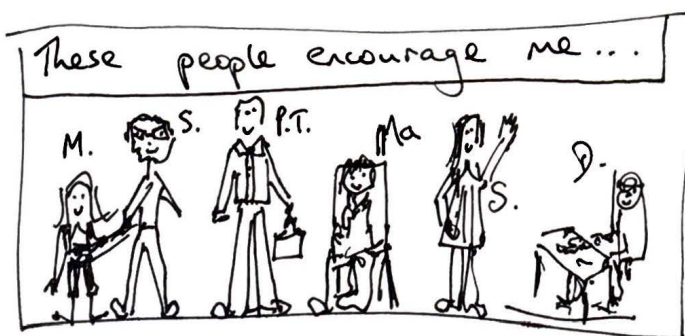 These people encourage me....
M.
S.
P.T.
Ma
S.
D.